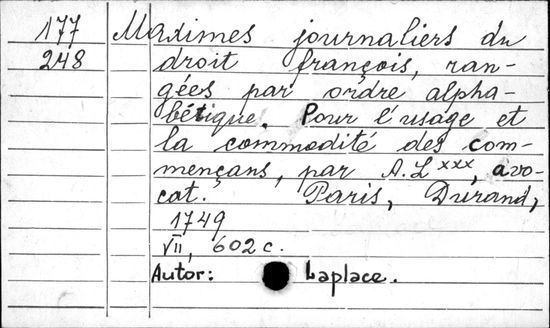 177 Maximes journaliers du
248 droit françois, ran-
gées par ordre alpha-
bétique. Pour l'usage et
la commodité des com-
mençans, par A.L xxx, avo-
cat. Paris, Durand,
1749
VII, 602 c.
Autor: Laplace.